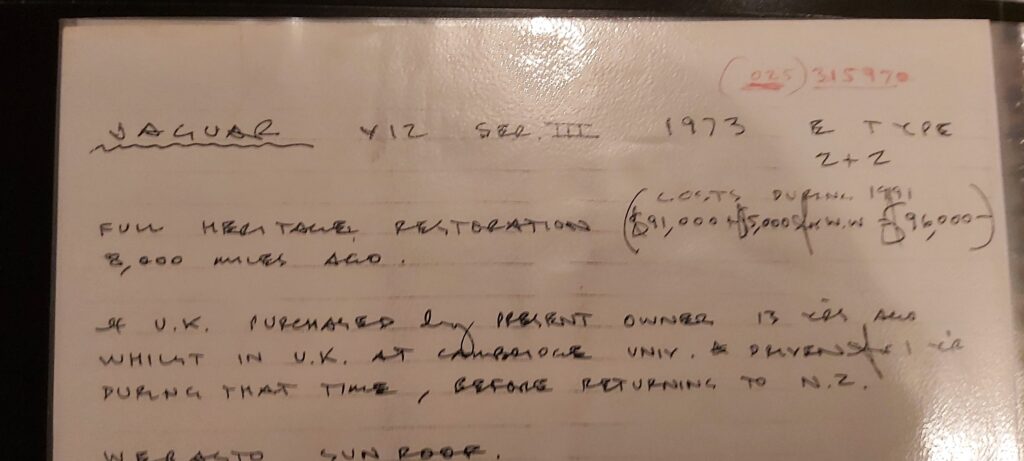 (025) 315970
JAGUAR V12 SER. III 1973 E TYPE
2+2
(COSTS DURING 1991
FULL HERITAGE RESTORATION $91,000 + $5,000 for W.W = $96,000-)
8,000 MILES AGO.
U.K. PURCHASED by PRESENT OWNER 13 YRS AGO
WHILST IN U.K. AT CAMBRIDGE UNIV. & DRIVEN for 1 YR
DURING THAT TIME, BEFORE RETURNING TO N.Z.
WEBASTO SUN ROOF.